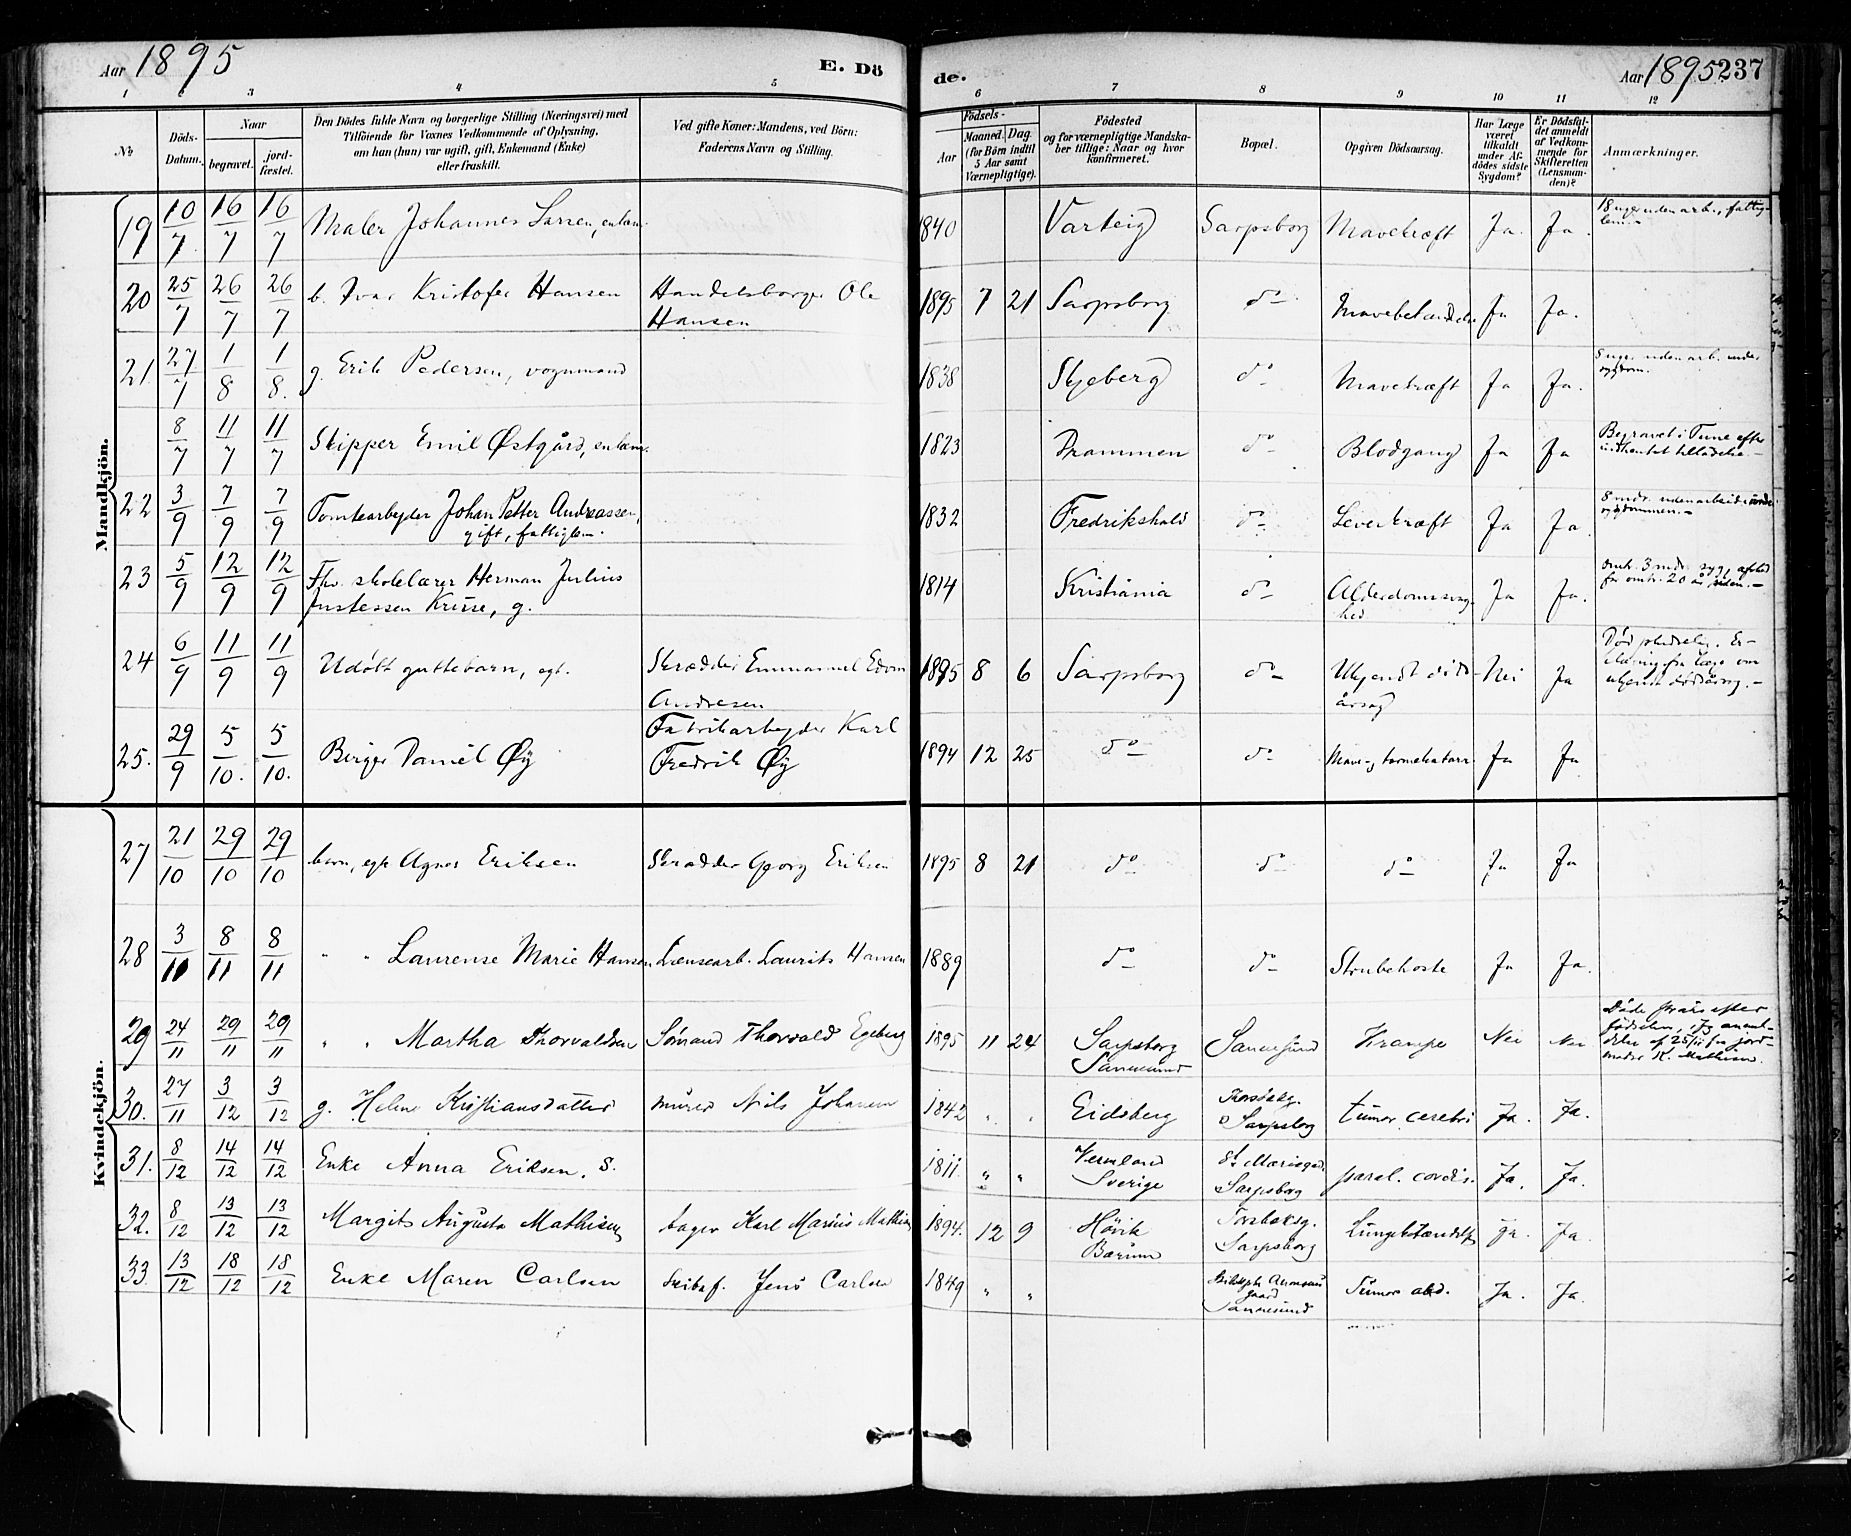 Aar 1895
E. Dö
de.
Aar 1895 237
1 2 3 4 5 6 7 8 9 10 11 12
No
Döds-Datum.
Naar
begravet.
jord-fæstet.
Den Dödes fulde Navn og borgerlige Stilling (Næringsvei) med
Tilföiende for Voxnes Vedkommende af Oplysning,
om han (hun) var ugift, gift, Enkemand (Enke)
eller fraskilt.
Ved gifte Koner: Mandens, ved Börn:
Faderens Navn og Stilling.
Födsels-
Aar
Maaned. Dag.
(for Börn indtil
5 Aar samt
Værnepligtige).
Födested
og for værnepligtige Mandska-
ber tillige: Naar og hvor
konfirmeret.
Bopæl.
Opgiven Dödsaarsag.
Har Læge
været
tilkaldt
under Af-
dödes sidste
Sygdom?
Er Dödsfal-
det anmeldt
af Vedkom-
mende for
Skifteretten
(Lensman-
den)?
Anmærkninger.
Mandkjön.
19 10/7 16/7 16/7 Maler Johannes Larsen, enkem. 1840 Varteig Sarpsborg Mavekræft Ja. Ja.
20 25/7 26/7 26/7 b. Ivar Kristofer Hansen Handelsborger Ole
Hansen 1895 7 21 Sarpsborg do Mavebetændelse Ja Ja.
21 27/7 1/8 1/8. g. Erik Pedersen, vognmand 1838 Skjeberg do Mavekræft Ja Ja.
8/7 11/7 11/7 Skipper Emil Østgård, enkem. 1823 Drammen do Blodgang Ja Ja Begravet i Tune efter
indhentet tilladelse.
22 3/9 7/9 7/9 Tomtearbeyder Johan Petter Andreassen,
gift, fattiglem. 1832 Fredrikshald do Leverkræft Ja Ja.
23 5/9 12/9 12/9 Fhv. skolelærer Herman Julius
Justessen Kruse, g. 1814 Kristiania do Alderdomssvag-
hed Ja Ja. omtr. 3 mdr. syg, afsked
for omtr. 20 år siden.
24 6/9 11/9 11/9 Udøbt guttebarn, egt. Skrædder Emmanuel Edvin
Andresen 1895 8 6 Sarpsborg do Ukjendt døds-
årsag Nei Ja Død pludselig. Er-
klæring fra læge om
ukjendt dødsårsag.
25. 29/9 5/10. 5/10. Birger Daniel Øy Fabrikarbeyder Karl
Fredrik Øy 1894 12 25 do do Mave- og tarmekatarr Ja Ja
Kvindekjön.
27 21/10 29/10 29/10 barn, egt. Agnes Eriksen Skrædder Georg Eriksen 1895 8 21 do do do Ja Ja
28 3/11 8/11 8/11 " " Laurense Marie Hansen Lænsearb. Laurits Hansen 1889 do do Strubehoste Ja Ja.
29 24/11 29/11 29/11 " " Martha Thorvaldsen Sømand Thorvald Egeberg 1895 11 24 Sarpsborg
Sannesund Sannesund Krampe Nei Nei
30. 27/11 3/12 3/12 g. Helene Kristiansdatter murer Nils Johansen 1842 " " Eidsberg
Sarpsborg tumor cerebri Ja. Ja.
31. 8/12 14/12 14/12 Enke Anna Eriksen. S. 1811. " " Vermland
Sverige St. Mariegd.
Sarpsborg paral. cordis. Ja. Ja.
32. 8/12 13/12 13/12 Margit Augusta Mathisen bager Karl Marius Mathisen 1894. 12 9 Høvik
Bærum Torsbekg.
Sarpsborg Lungebetændelse Ja. Ja.
33. 13/12 18/12 18/12 Enke Maren Carlsen Skibsf. Jens Carlsen 1849 " "
Sannesund Tumor abd. Ja. Ja.